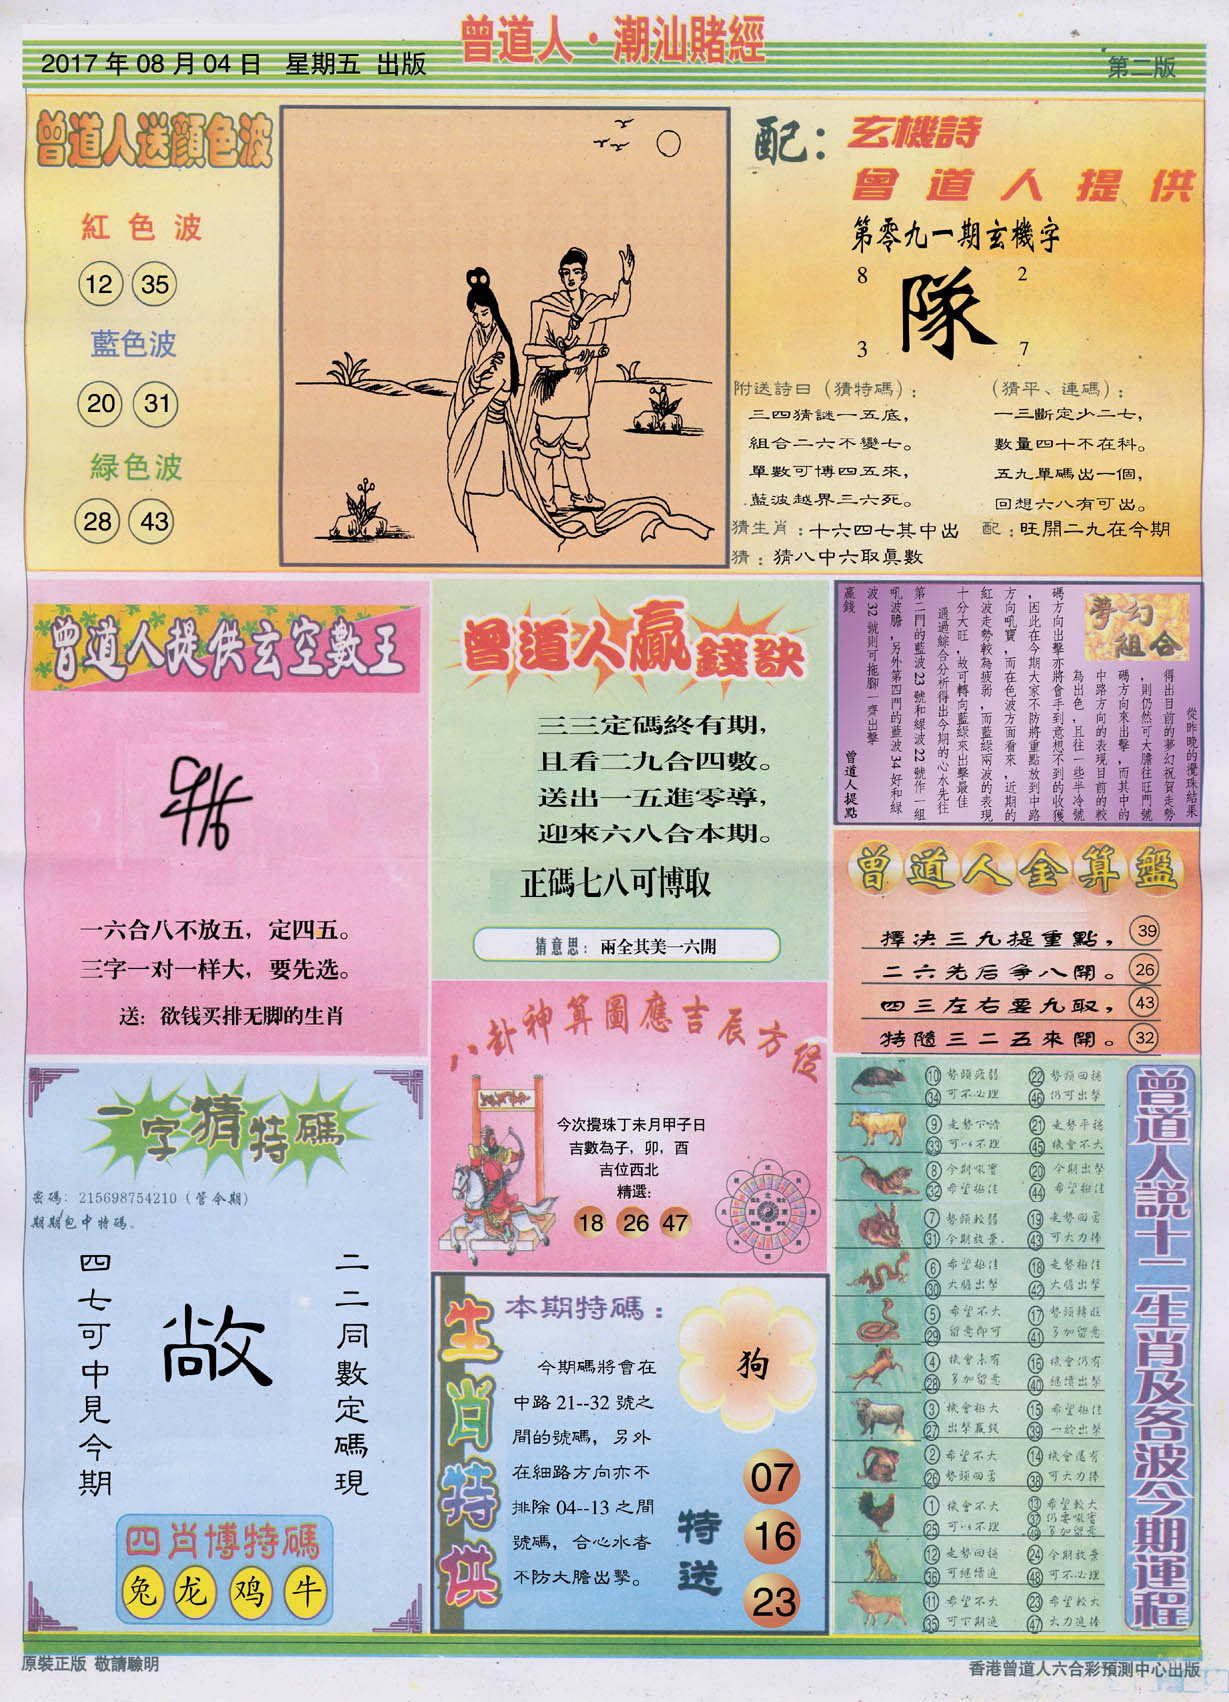 曾道人·潮汕賭經
2017 年 08 月 04 日 星期五 出版
第二版
曾道人送顏色波
紅色波
12 35
藍色波
20 31
緑色波
28 43
配：玄機詩
曾道人提供
第零九一期玄機字
8 2
隊
3 7
附送詩曰（猜特碼）：
三四猜謎一五底，
組合二六不變七。
單數可博四五來，
藍波越界三六死。
（猜平、連碼）：
一三斷定少二七，
數量四十不在科。
五九單碼出一個，
回想六八有可出。
猜生肖：十六四七其中出
配：旺開二九在今期
猜：猜八中六取眞數
曾道人提供玄空數王
一六合八不放五，定四五。
三字一对一样大，要先选。
送：欲钱买排无脚的生肖
曾道人贏錢訣
三三定碼終有期，
且看二九合四數。
送出一五進零導，
迎來六八合本期。
正碼七八可博取
猜意思：兩全其美一六開
夢幻組合
從昨晚的攪珠結果
得出目前的夢幻祝賀走勢
，則仍然可大膽往旺門號
碼方向來出擊，而其中的
中路方向的表現目前的較
為出色，且往一些半冷號
碼方向出擊亦將會手到意想不到的收獲
，因此在今期大家不防將重點放到中路
方向吼寶，而在色波方面看來，近期的
紅波走勢較為疲弱，而藍綠兩波的表現
十分大旺，故可轉向藍綠來出擊最佳
通過綜合分析得出今期的心水先往
第二門的藍波 23 號和綠波 22 號作一組
吼波膽，另外第四門的藍波 34 好和綠
波 32 號則可拖腳一齊出擊
贏錢
曾道人提點
曾道人金算盤
擇決三九提重點，39
二六先后爭八開。26
四三左右要九取，43
特隨三二五來開。32
八卦神算圖應吉辰方位
今次攪珠丁未月甲子日
吉數為子，卯，酉
吉位西北
精選：
18 26 47
一字猜特碼
密碼：215698754210（管今期）
期期包中特碼。
四七可中見今期
敞
二二同數定碼現
四肖博特碼
兔 龙 鸡 牛
生肖特供
本期特碼：
今期碼將會在
中路 21--32 號之
間的號碼，另外
在細路方向亦不
排除 04--13 之間
號碼，合心水者
不防大膽出擊。
狗
特送
07
16
23
曾道人説十二生肖及各波今期運程
10 勢頭疲弱 22 勢頭回穩
34 可不必理 46 仍可出擊
9 走勢下滑 21 走勢平穩
33 可以不理 45 機會不大
8 今期吼寶 20 今期出擊
32 希望極佳 44 希望極佳
7 勢頭較弱 19 走勢回勇
31 今期放棄 43 可大力捧
6 希望極佳 18 走勢極佳
30 大膽出擊 42 大膽出擊
5 希望不大 17 勢頭轉旺
29 留意即可 41 多加留意
4 機會未有 16 機會仍有
28 多加留意 40 繼續出擊
3 機會極大 15 希望極佳
27 出擊贏錢 39 一於出擊
2 希望不大 14 機會還有
26 勢頭回勇 38 可大力捧
1 機會不大 13 希望較大
37 仍要吼寶
25 可以不理 49 多加留意
12 走勢回穩 24 今期放棄
36 可繼續追 48 可不必理
11 希望不大 23 希望較大
35 可下期追 47 大力追捧
原裝正版 敬請驗明
香港曾道人六合彩預測中心出版